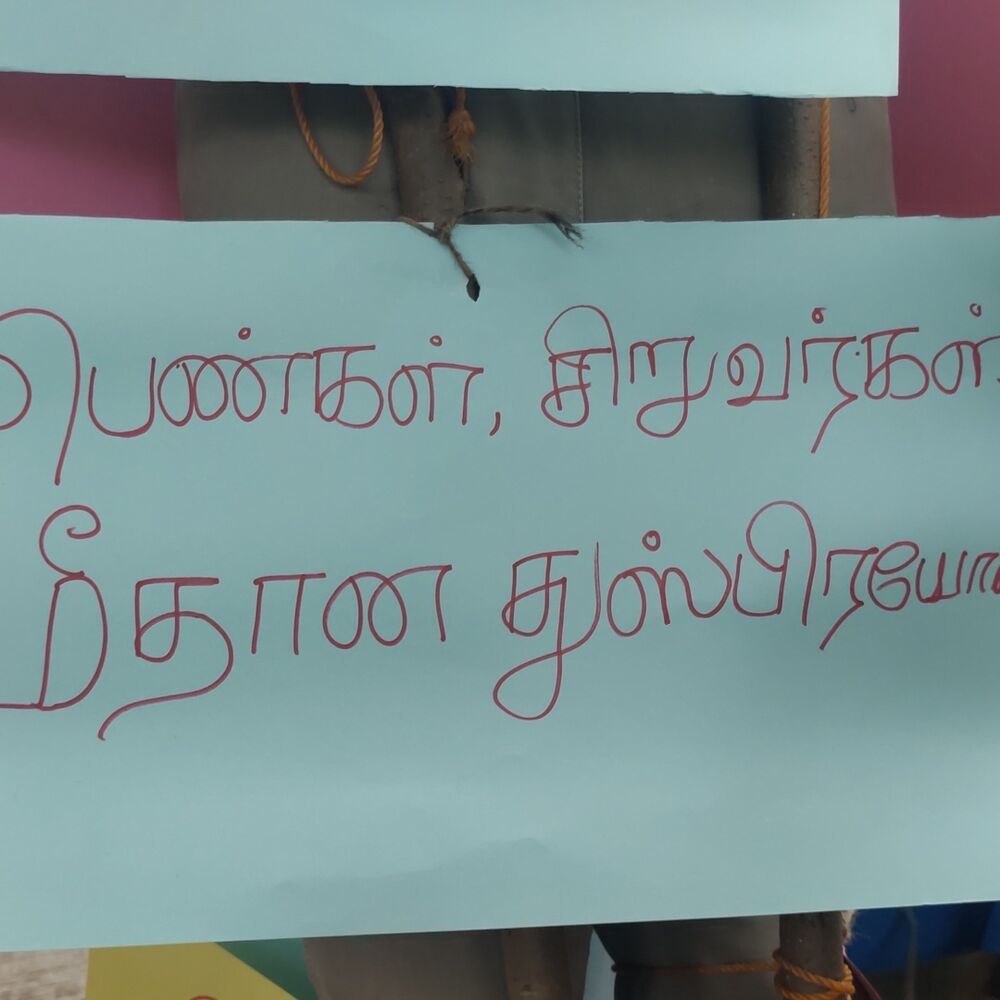 பெண்கள், சிறுவர்கள்
மீதான துஸ்பிரயோ